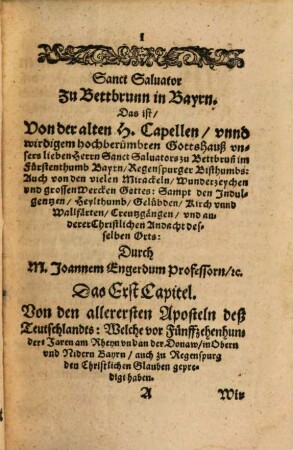 1
Sanct Saluator
Zu Bettbrunn in Bayrn.
Das ist/
Von der alten H. Capellen/ vnnd
wirdigem hochberümbten Gottshauß vn-
sers lieben Herrn Sanct Saluators zu Bettbruñ im
Fürstenthumb Bayrn/ Regenspurger Bisthumbs:
Auch von den vielen Mirackeln/ Wunderzeychen
vnd grossen Wercken Gottes: Sampt den Indul-
gentzen/ Heylthumb/ Gelübden/ Kirch vnnd
Wallfärten/ Creutzgängen/ vnd an-
derer Christlichen Andacht des-
selben Orts:
Durch
M. Joannem Engerdum Professorn/ꝛc.
Das Erst Capitel.
Von den allerersten Aposteln deß
Teutschlandts: Welche vor Fünffzehenhun-
dert Jaren am Rheyn vñ an der Donaw/ in Obern
vnd Nidern Bayrn/ auch zu Regenspurg
den Christlichen Glauben gepre-
digt haben.
A Wir